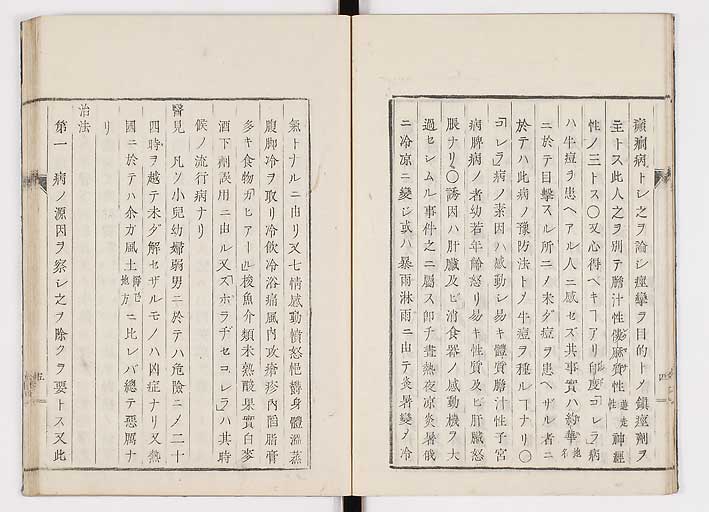 癲癇病トシ之ヲ論シ痙攣ヲ目的トメ鎮痙劑ヲ
主トス此人之ヲ別テ膽汁性僂麻質性神經
性ノ三トス〇又心得ベキヿアリ印度コレラ病
ハ牛痘ヲ患ヘアル人ニ感セズ其事實ハ
ニ於テ目擊スル所ニノ未ダ痘ヲ患ヘザル者ニ
於テハ此病ノ豫防法トノ牛痘ヲ種ルヿナリ〇
コレラ病ノ素因ハ感動シ易キ體質膽汁性子宮
病脾病ノ者幼若年齡怒リ易キ性質及ヒ肝臟怒
脹ナリ〇誘因ハ肝臟及ビ消食器ノ感動機ヲ大
過セシムル事件之ニ屬ス即チ晝熱夜凉炎暑俄
ニ冷凉ニ變シ或ハ暴雨淋雨ニ由テ炎暑變ノ冷
氣トナルニ由リ又七情感動憤怒悒欝身體濕蒸
腹脚冷ヲ取リ冷飲冷浴痛風内攻瘡疹内陷脂膏
多キ食物 梭魚介類未熟酸果實白麥
酒下劑誤用ニ由ル又ズホラヂセコレラハ其時
候ノ流行病ナリ
醫見 凡ソ小兒幼婦弱男ニ於テハ危險ニノ二十
四時ヲ越テ未ダ解セザルモノハ凶症ナリ又熱
國ニ於テハ余ガ風土ニ比レバ總テ惡厲ナ
リ
治法
第一 病ノ源因ヲ察シ之ヲ除クヲ要トス又此